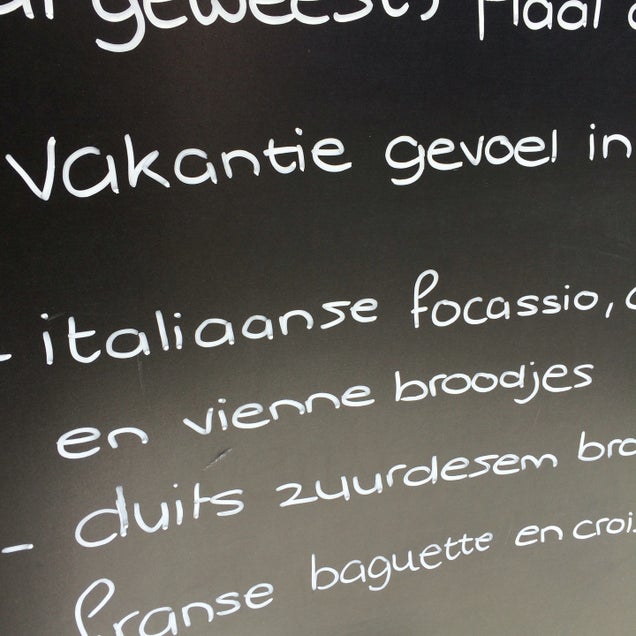 geweest,
Vakantie gevoel in
- italiaanse focassio,
en vienne broodjes
- duits zuurdesem bro
franse baguette en crois